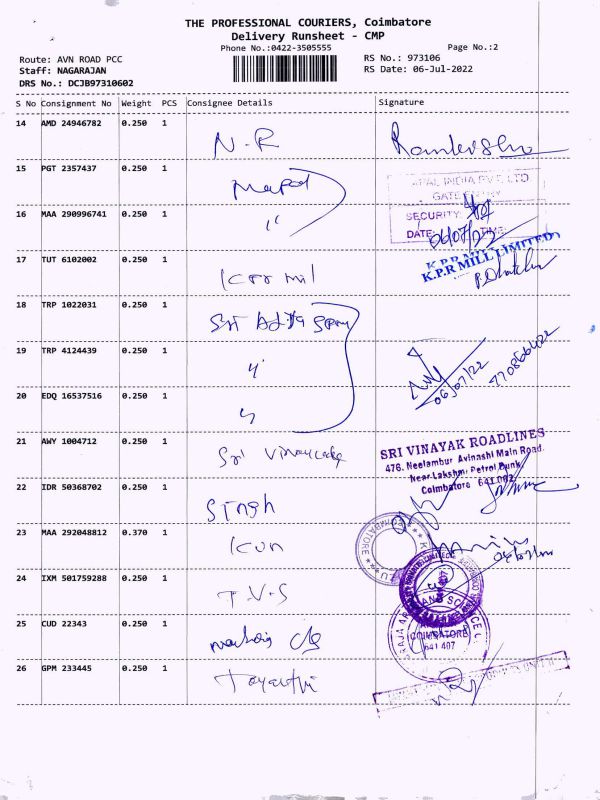 THE PROFESSIONAL COURIERS, Coimbatore
Delivery Runsheet - CMP
Phone No.:0422-3505555
Page No.:2
Route: AVN ROAD PCC
RS No.: 973106
Staff: NAGARAJAN
RS Date: 06-Jul-2022
DRS No.: DCJB97310602
S No Consignment No Weight PCS Consignee Details Signature
14 AMD 24946782 0.250 1 N.R
15 PGT 2357437 0.250 1
INDIA PVT. LTD
GATE ENTRY
16 MAA 290996741 0.250 1 "
SECURITY:
DATE: 06/07/22 TIME:
17 TUT 6102002 0.250 1 KPR mil
K.P.R MILL LIMITED
18 TRP 1022031 0.250 1 Sri
19 TRP 4124439 0.250 1 "
06/07/22
20 EDQ 16537516 0.250 1 "
21 AWY 1004712 0.250 1 Sri
SRI VINAYAK ROADLINES
476, Neelambur Avinashi Main Road,
Near Lakshmi Petrol Bunk,
Coimbatore 641 062
22 IDR 50368702 0.250 1 Singh
23 MAA 292048812 0.370 1
COIMBATORE
24 IXM 501759288 0.250 1 T.V.S
25 CUD 22343 0.250 1
COIMBATORE
641 407
26 GPM 233445 0.250 1